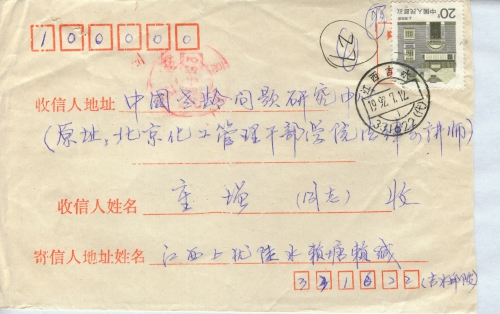 100000
20分
中国人民邮政
收信人地址 中國老龄问题研究中心
(原址:北京化工管理干部学院法律系讲师)
江西吉水
1992.7.12
331622
收信人姓名 童增 (同志) 收
寄信人地址姓名 江西上犹陡水赖塘赖斌
331622 (吉水邮政)